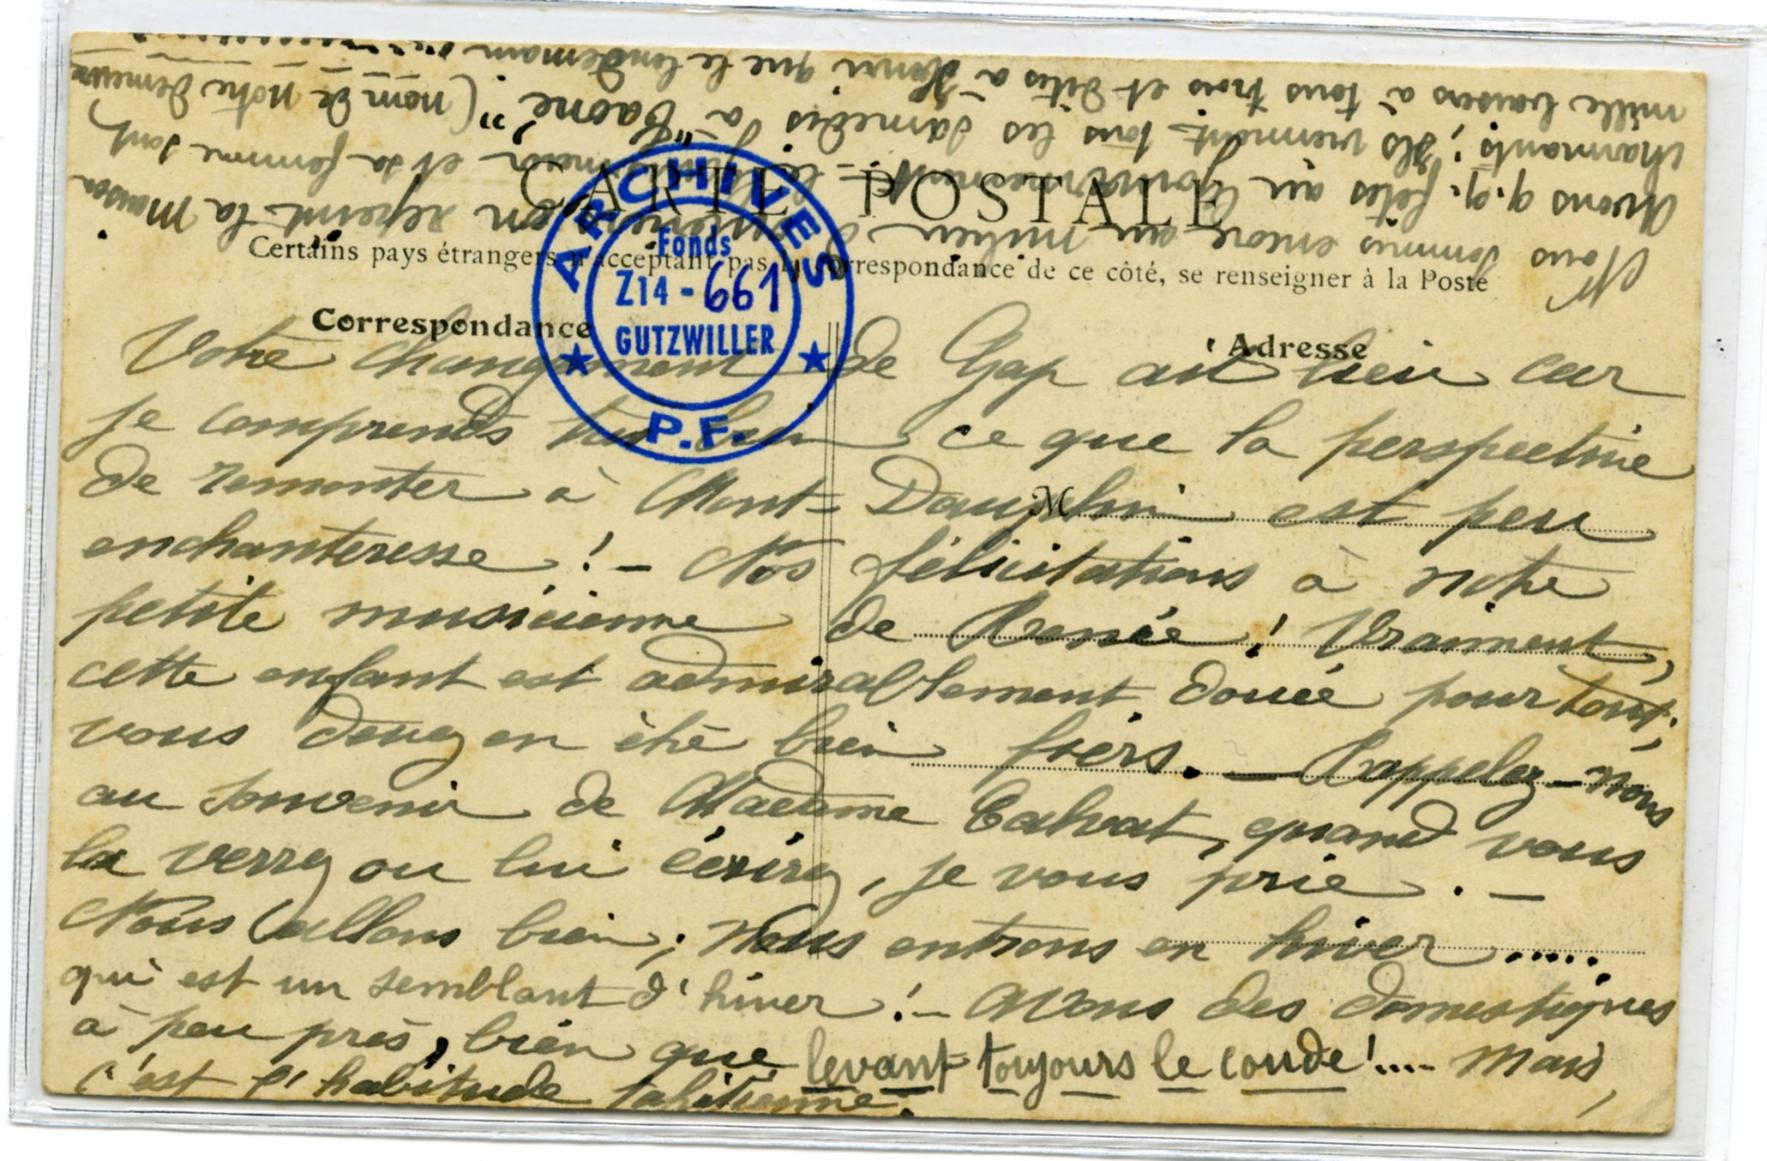 CARTE POSTALE
Certains pays étrangers n'acceptant pas la correspondance de ce côté, se renseigner à la Poste
Correspondance
Adresse
M
ARCHIVES
Fonds
Z14-661
GUTZWILLER
P.F.
Votre changement de Gap ait lieu car
je comprends très bien ce que la perspective
de remonter à Mont=Dauphin est peu
enchanteresse ! - Nos félicitations à notre
petite musicienne de Renée ! Vraiment,
cette enfant est admirablement douée pour tout;
vous devez en être bien fiers. — Rappelez-nous
au souvenir de Madame Calvat, quand vous
la verrez ou lui écrirez, je vous prie. -
Nous allons bien ; Nous entrons en hiver .....
qui est un semblant d'hiver ! - Avons des domestiques
à peu près, bien que levant toujours le coude !.... Mais,
c'est l'habitude tahitienne.
Nous sommes encore au milieu on repeint la maison.
Avons q.q. fêtes au Gouvernement = et sa femme sont
charmants ; ils viennent tous les samedis à (nom de notre demeure
mille baisers à tous trois et dites à Henri que le lendemain